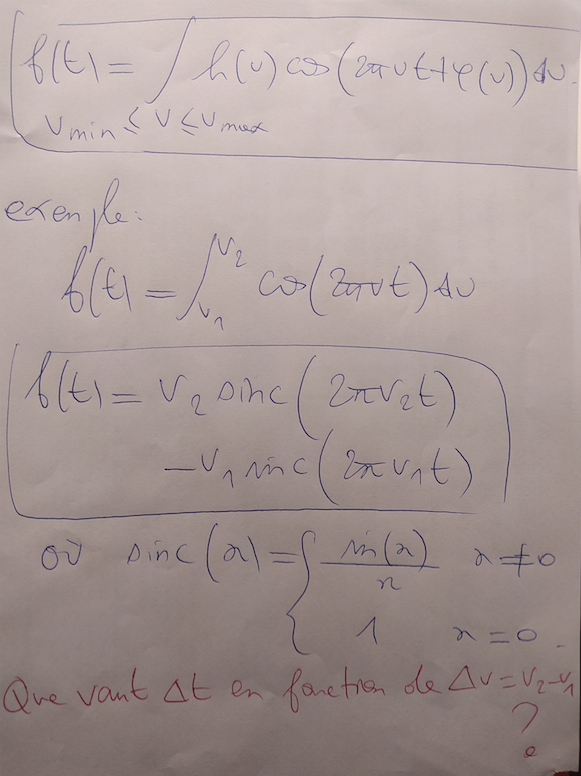 f(t) = ∫ h(ν) cos(2πνt + φ(ν)) dν.
ν min ≤ ν ≤ ν max
exemple:
f(t) = ∫_{ν1}^{ν2} cos(2πνt) dν
f(t) = ν2 sinc(2πν2t)
-ν1 sinc(2πν1t)
où sinc(x) = { sin(x)/x x ≠ 0
1 x = 0.
Que vaut Δt en fonction de Δν = ν2-ν1
?